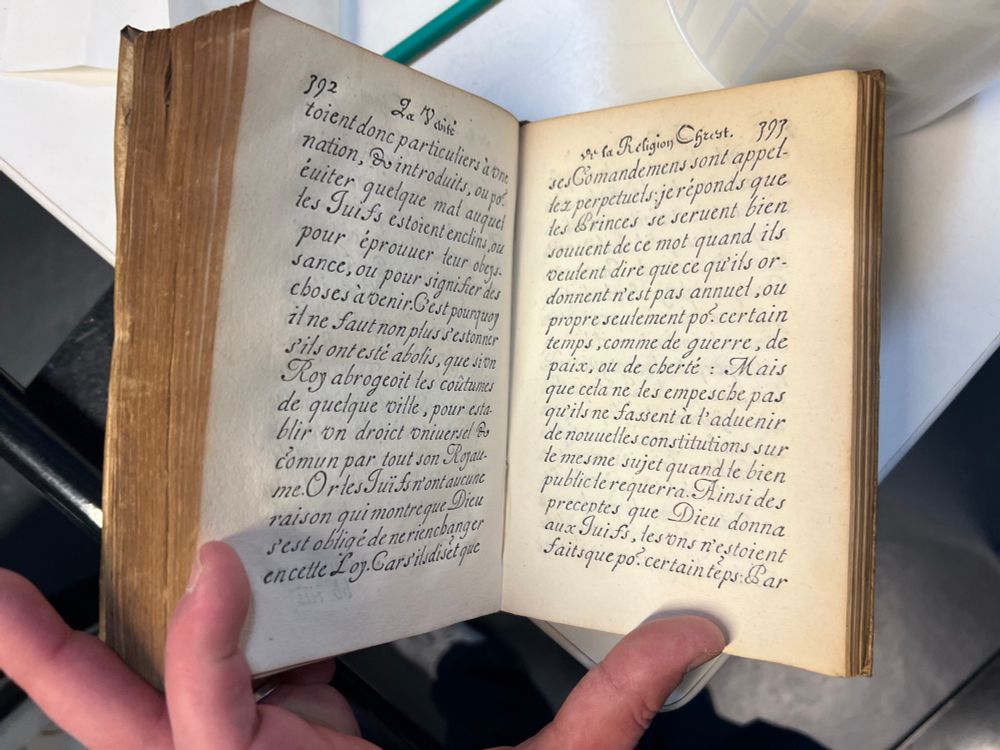 392
La Verité
toient donc particuliers à vne
nation, & introduits, ou poʳ.
éuiter quelque mal auquel
les Juifs estoient enclins, ou
pour éprouuer leur obeys-
sance, ou pour signifier des
choses à venir. C'est pourquoy
il ne faut non plus s'estonner
s'ils ont esté abolis, que si vn
Roy abrogeoit les coûtumes
de quelque ville, pour esta-
blir vn droict vniuersel &
cōmun par tout son Royau-
me. Or les Juïfs n'ont aucune
raison qui montre que Dieu
s'est obligé de ne rien changer
en cette Loy. Car s'ils disēt que
de la Religion Chrest. 393
ses Comandemens sont appel-
lez perpetuels: je réponds que
les Princes se seruent bien
souuent de ce mot quand ils
veulent dire que ce qu'ils or-
donnent n'est pas annuel, ou
propre seulement poʳ. certain
temps, comme de guerre, de
paix, ou de cherté : Mais
que cela ne les empesche pas
qu'ils ne fassent à l'aduenir
de nouuelles constitutions sur
le mesme sujet quand le bien
public le requerra. Ainsi des
preceptes que Dieu donna
aux Juifs, les vns n'estoient
faits que poʳ. certain tēps: Par